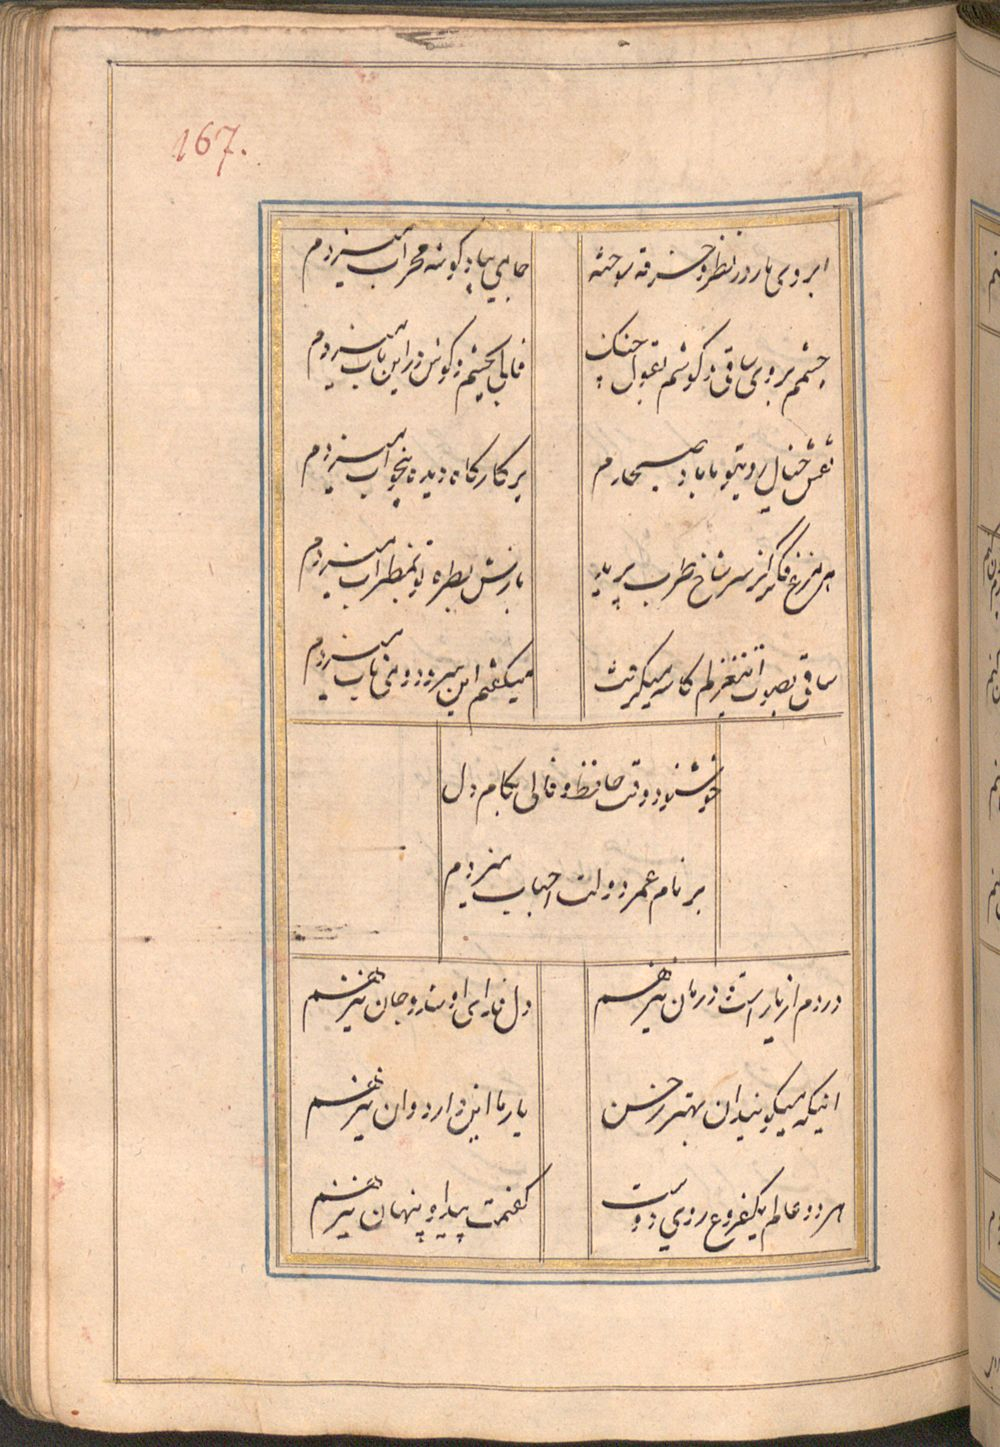 167.
ابروی یار در نظر و خرقه سوخته جامی بیاد گوشه محراب میزدم
چشمم بروی ساقی و گوشم بقول چنگ فالی بچشم و گوش در این باب میزدم
نقش خیال رویتو تا صبحدم بر کارگاه دیده بیخواب میزدم
هر مرغ فکر کز سر شاخ طرب پرید بازش بطره تو بمضراب میزدم
ساقی بصوت این غزلم کاسه میگرفت میگفتم این سرود و می ناب میزدم
خوش بود وقت حافظ و فالی بکام دل
بر نام عمر و دولت احباب میزدم
دردم از یار است و درمان نیز هم دل فدای او شد و جان نیز هم
اینکه میگویند ان بهتر ز حسن یار ما این دارد و ان نیز هم
هر دو عالم یکفروغ روی دوست گفتمت پیدا و پنهان نیز هم